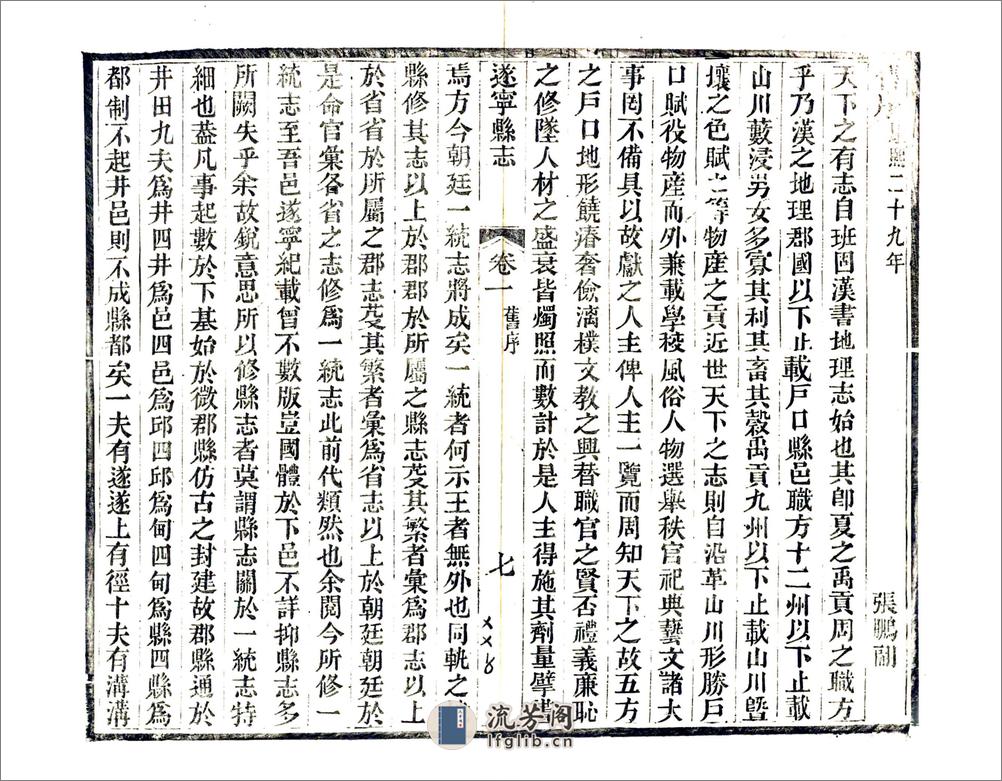 舊序康熙二十九年 張鵬翮
天下之有志自班固漢書地理志始也其卽夏之禹貢周之職方
乎乃漢之地理郡國以下止載戶口縣邑職方十二州以下止載
山川藪浸男女多寡其利其畜其穀禹貢九州以下止載山川曁
壤之色賦之等物產之貢近世天下之志則自沿革山川形勝戶
口賦役物產而外兼載學校風俗人物選舉秩官祀典藝文諸大
事罔不備具以故獻之人主俾人主一覽而周知天下之故五方
之戶口地形饒瘠奢儉漓樸文教之興替職官之賢否禮義廉恥
之修墜人材之盛衰皆燭照而數計於是人主得施其劑量擘畫
遂寧縣志
卷一
舊序
七
焉方今朝廷一統志將成矣一統者何示王者無外也同軌之
縣修其志以上於郡郡於所屬之縣志芟其繁者彙爲郡志以上
於省省於所屬之郡志芟其繁者彙爲省志以上於朝廷朝廷於
是命官彙各省之志修爲一統志此前代類然也余閱今所修一
統志至吾邑遂寧紀載曾不數版豈國體於下邑不詳抑縣志多
所闕失乎余故銳意思所以修縣志者莫謂縣志關於一統志特
細也葢凡事起數於下基始於微郡縣仿古之封建故郡縣通於
井田九夫爲井四井爲邑四邑爲邱四邱爲甸四甸爲縣四縣爲
都制不起井邑則不成縣都矣一夫有遂遂上有徑十夫有溝溝
流芳阁
lfglib.cn